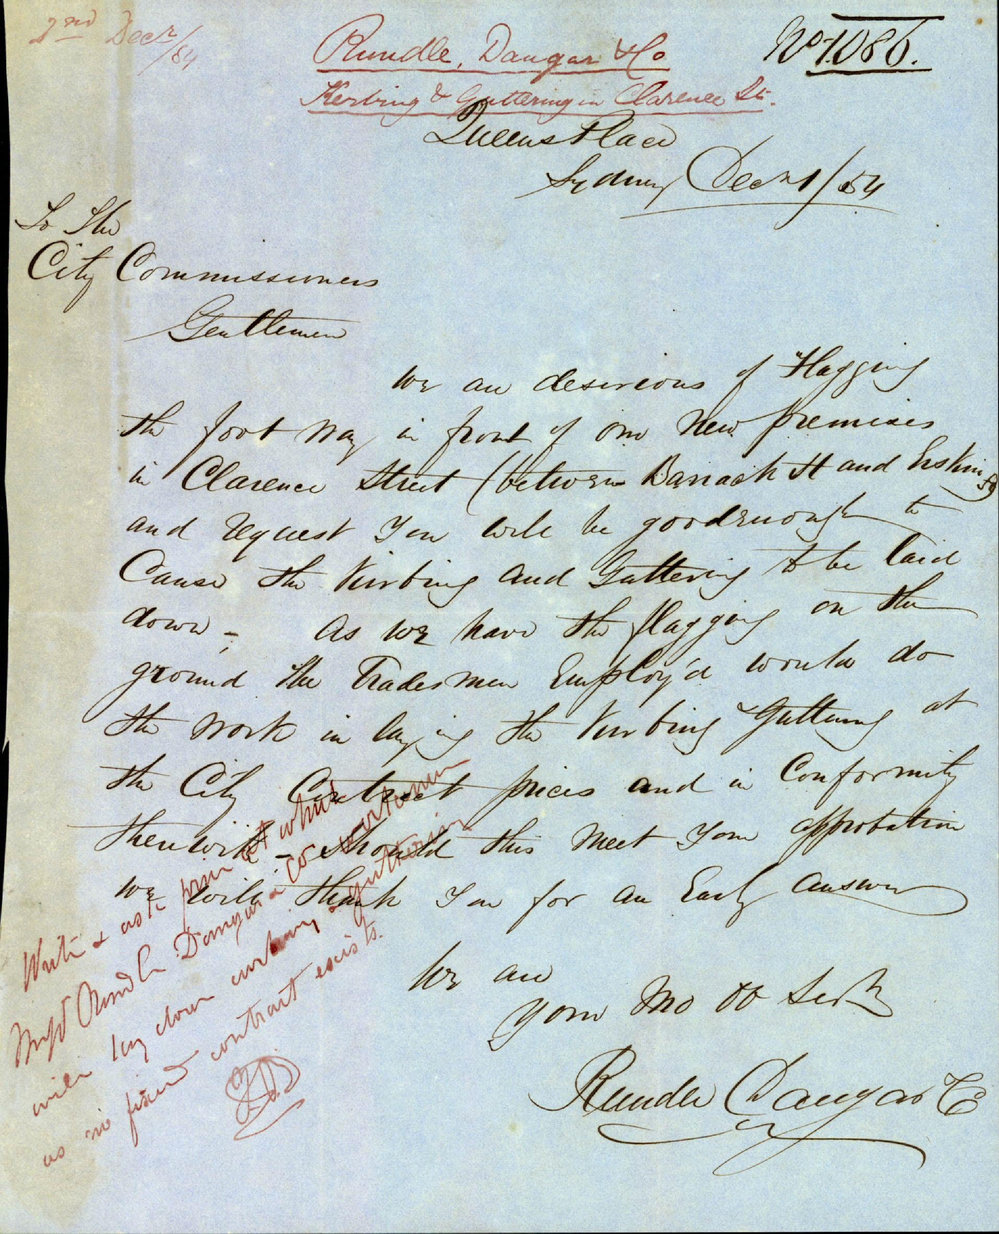 2nd Decr /54
Rundle, Dangar & Co
No 1086.
Kerbing & Guttering in Clarence St.
Queens Place
Sydney Decr 1/54
To the
City Commissioners
Gentlemen
We are desireious of Flagging
the foot way in front of our New premises
in Clarence Street (between Barrack St and Erskine St)
and request You will be good enough to
Cause the Kirbing and Guttering to be laid
down - As we have the flagging on the
ground the Tradesmen Employ'd would do
the work in laying the Kirbing & Guttering at
the City Contract prices and in Conformity
therewith - Should this Meet Your approbation
we will thank You for an Early answer
We are
Your Mo Ob Servts
Rundle Dangar & Co
Write & ask price at which
Messrs Rundle Dangar & Co
will lay down curbing & guttering
as no fixed contract exists.